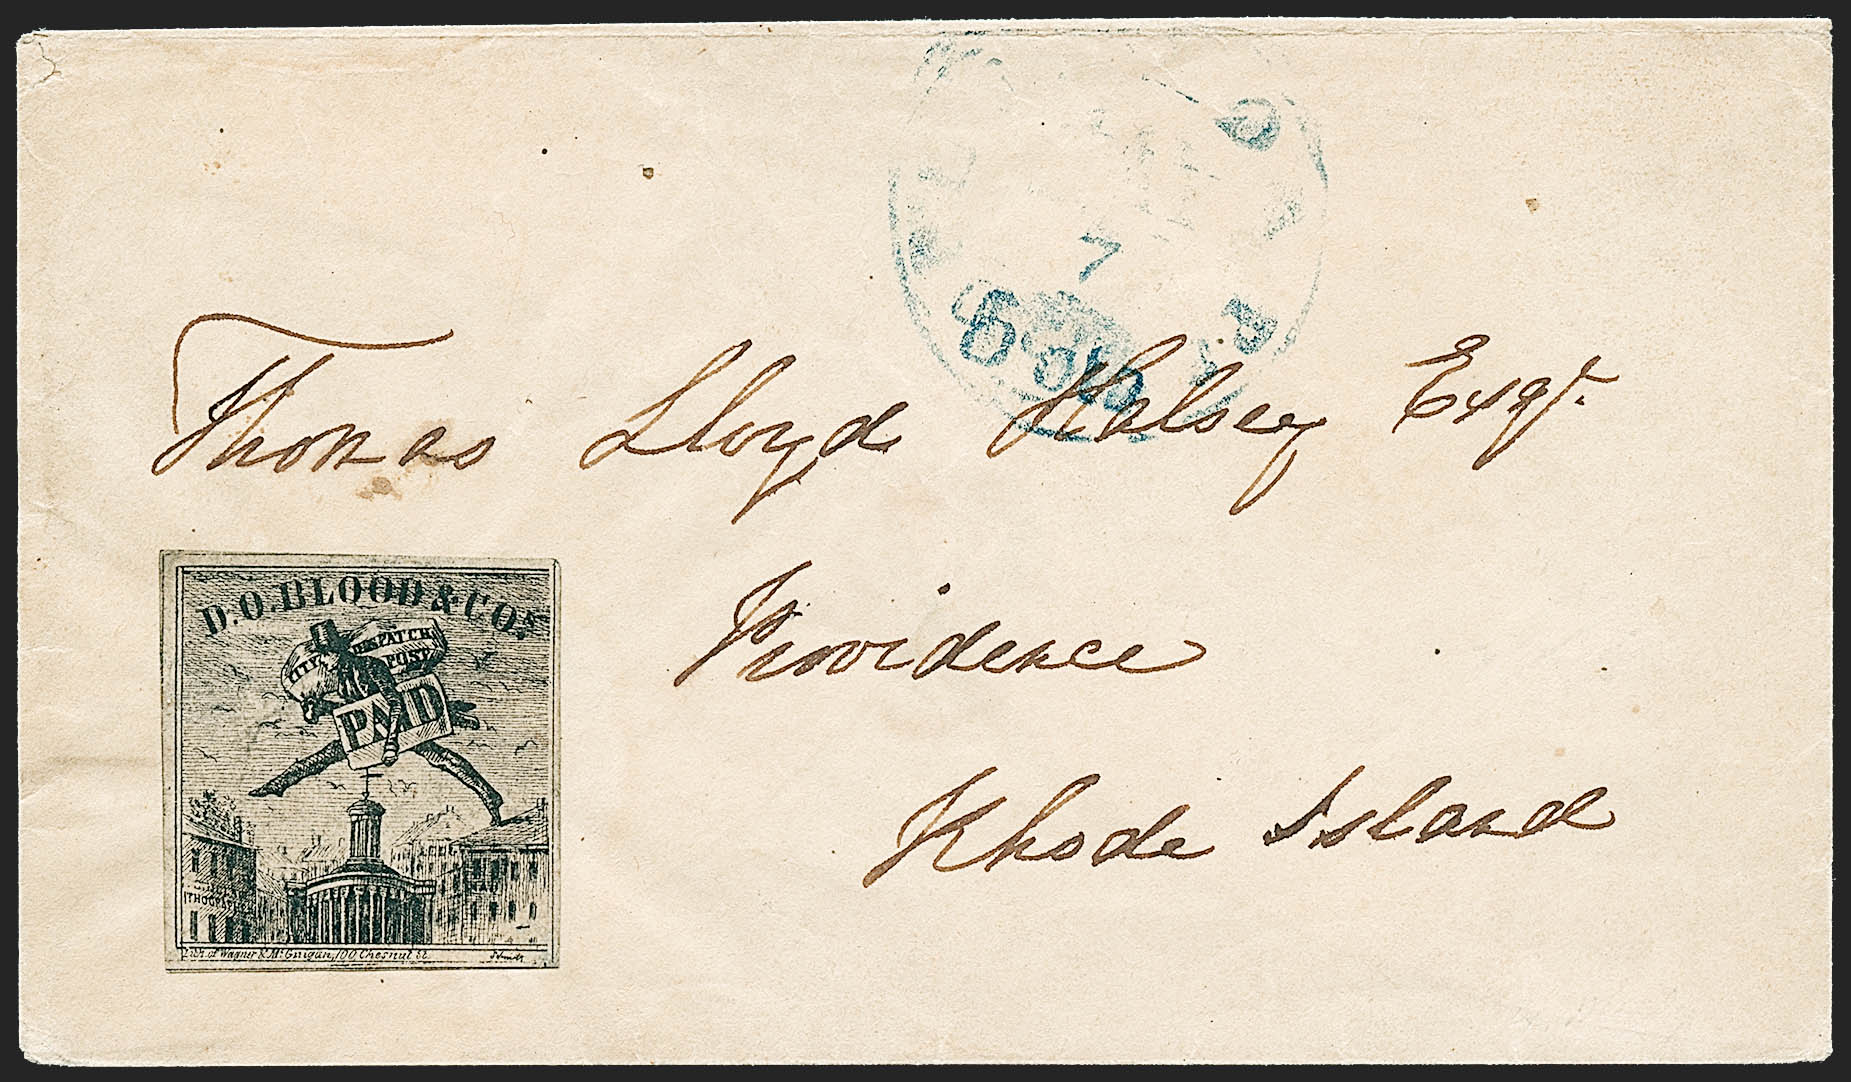 7
5 cts
Thomas Lloyd Halsey Esqr.
Providence
Rhode Island
D.O. BLOOD & COs
CITY DESPATCH
POST
PAID
Lith. of Wagner & Mc Guigan, 100 Chesnut St.